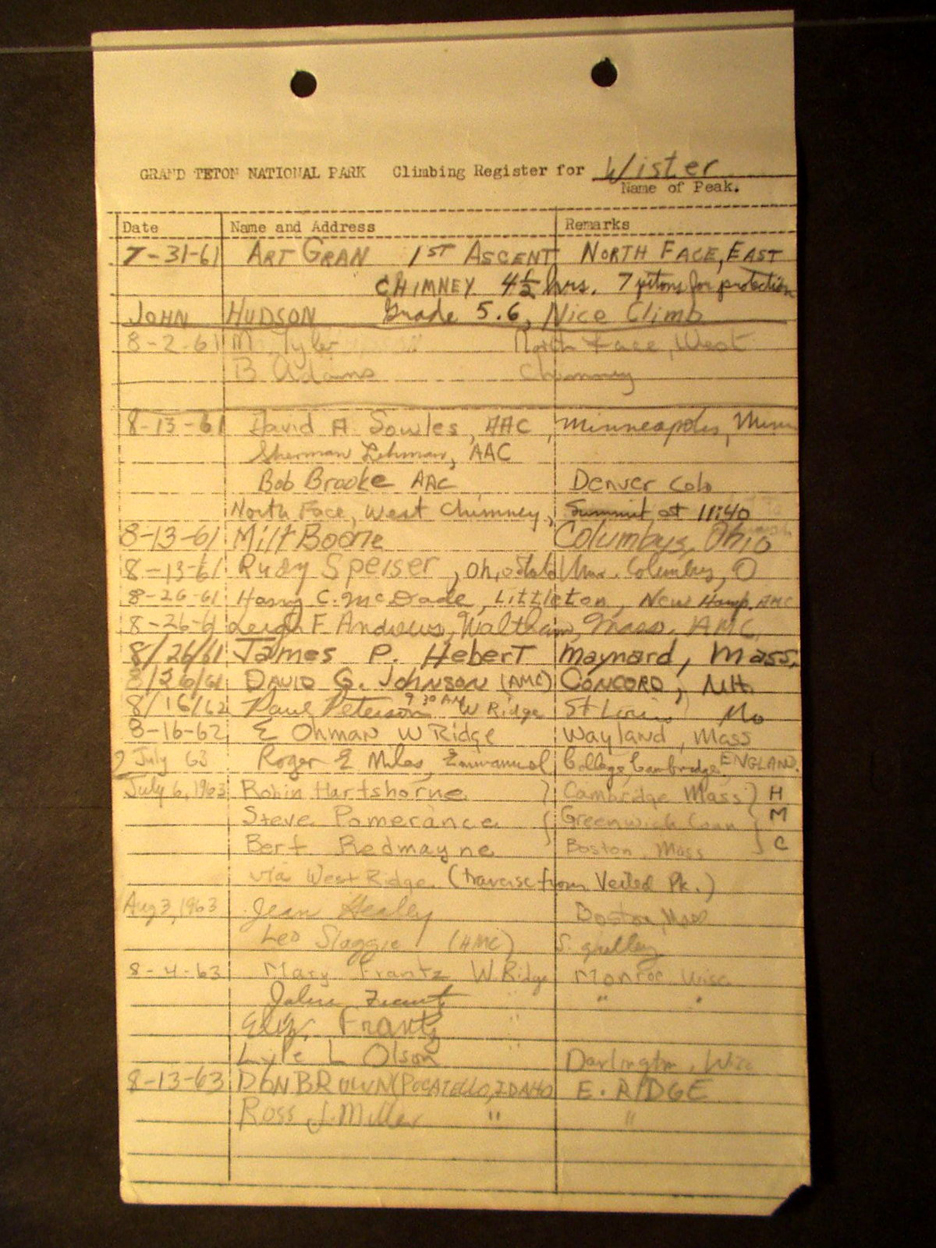 GRAND TETON NATIONAL PARK Climbing Register for Wister
Name of Peak.
Date Name and Address Remarks
7-31-61 ART GRAN 1ST ASCENT NORTH FACE, EAST
CHIMNEY 4½ hrs. 7 pitons for protection
JOHN HUDSON Grade 5.6, Nice Climb
8-2-61 M. Tyler North Face, West
B. Adams Chimney
8-13-61 David A. Sowles, AAC, Minneapolis, Minn
Sherman Lehman, AAC
Bob Brooke AAC Denver Colo
North Face, West Chimney, Summit at 11:40
8-13-61 Milt Boone Columbus, Ohio
8-13-61 Rudy Speiser, Columbus, O
8-26-61 Harry C. McDade, Littleton, New Hamp. AMC
8-26-61 Leigh F Andrews, Waltham, Mass. AMC
8/26/61 James P. Hebert Maynard, Mass.
8/26/61 DAVID G. JOHNSON (AMC) CONCORD, N.H.
8/16/62 Paul Peterson 9:30 AM W Ridge St Louis Mo
8-16-62 E Ohman W Ridge Wayland, Mass
2 July 63 Roger E Miles, Emmanuel College Cambridge, ENGLAND.
July 6, 1963 Robin Hartshorne } Cambridge Mass } H
Steve Pomerance { Greenwich Conn } M
Bert Redmayne Boston, Mass C
via West Ridge. (traverse from Veiled Pk.)
Aug 3, 1963 Jean Healey Boston, Mass
Leo Slaggie (HMC)
8-4-63 Mary Frantz W. Ridge Monroe Wisc
" "
Eliz. Frantz "
Lyle L Olson " Darlington, Wisc
8-13-63 DON BROWN (POCATELLO, IDAHO E. RIDGE
Ross J. Miller " "